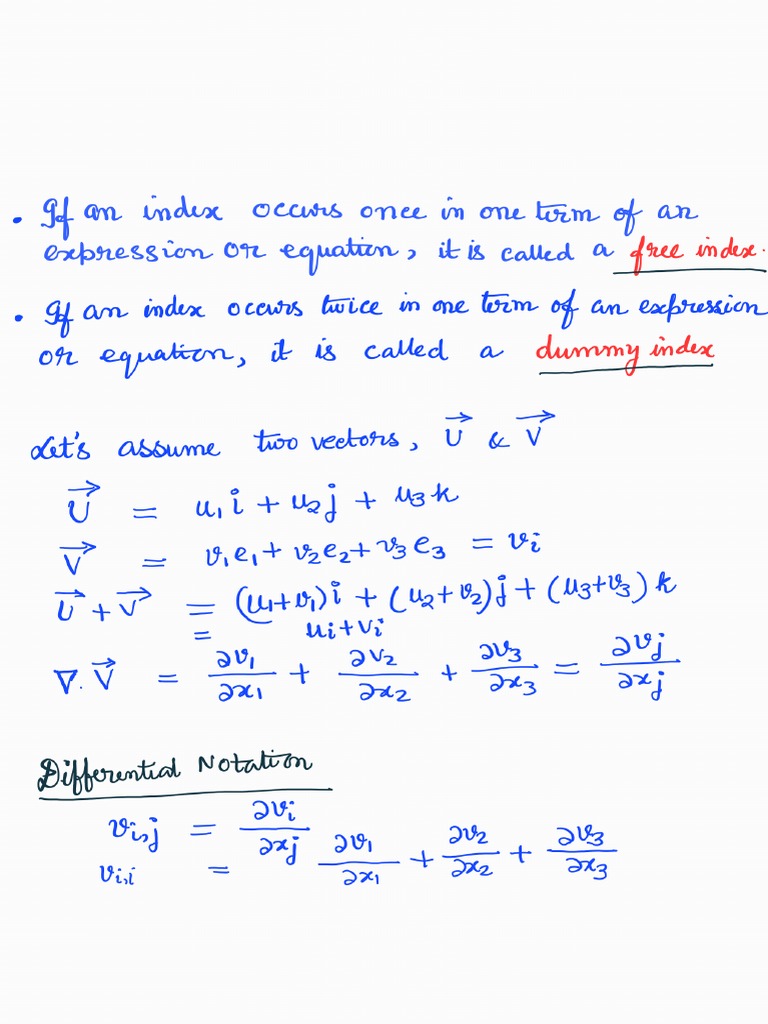 • If an index occurs once in one term of an
expression or equation, it is called a free index.
• If an index occurs twice in one term of an expression
or equation, it is called a dummy index
Let's assume two vectors, U⃗ & V⃗
U⃗ = u₁i + u₂j + u₃k
V⃗ = v₁e₁ + v₂e₂ + v₃e₃ = vᵢ
U⃗ + V⃗ = (u₁+v₁)i + (u₂+v₂)j + (u₃+v₃)k
= uᵢ+vᵢ
∇.V⃗ = ∂v₁/∂x₁ + ∂v₂/∂x₂ + ∂v₃/∂x₃ = ∂vⱼ/∂xⱼ
Differential Notation
vᵢ,ⱼ = ∂vᵢ/∂xⱼ
vᵢ,ᵢ = ∂v₁/∂x₁ + ∂v₂/∂x₂ + ∂v₃/∂x₃